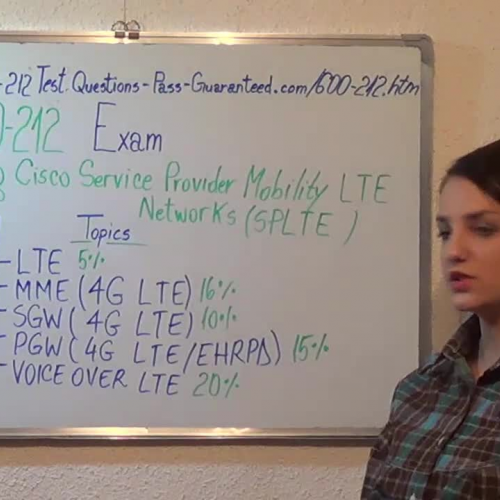 -212 Test Questions-Pass-Guaranteed.com/600-212.htm
0-212 Exam
Cisco Service Provider Mobility LTE
Networks (SPLTE )
Topics
- LTE 5%
- MME (4G LTE) 16%
- SGW (4G LTE) 10%
- PGW (4G LTE/EHRPD) 15%
- VOICE OVER LTE 20%